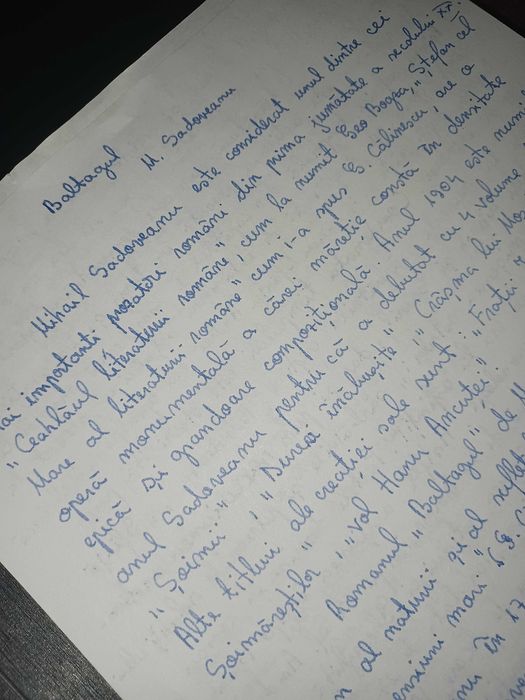 Baltagul
M. Sadoveanu
Mihail Sadoveanu este considerat unul dintre cei
mai importanti prozatori români din prima jumătate a secolului XX.
"Ceahlăul literaturii române", cum la numit Geo Bogza, "Ștefan cel
Mare al literaturii române" cum i-a spus G. Călinescu, are o
operă monumentală a cărei măreție constă în densitate
epică și grandoare compozițională. Anul 1904 este
anul Sadoveanu pentru că a debutat cu 4 volume
"Șoimii", "Dureri înăbușite", "Crâșma lui Moș
Alte titluri ale creației sale sunt: "Frații
Șoimărești", vol "Hanu Ancuței".
Romanul "Baltagul" de M
al naturii și al
mari (G.
în 17